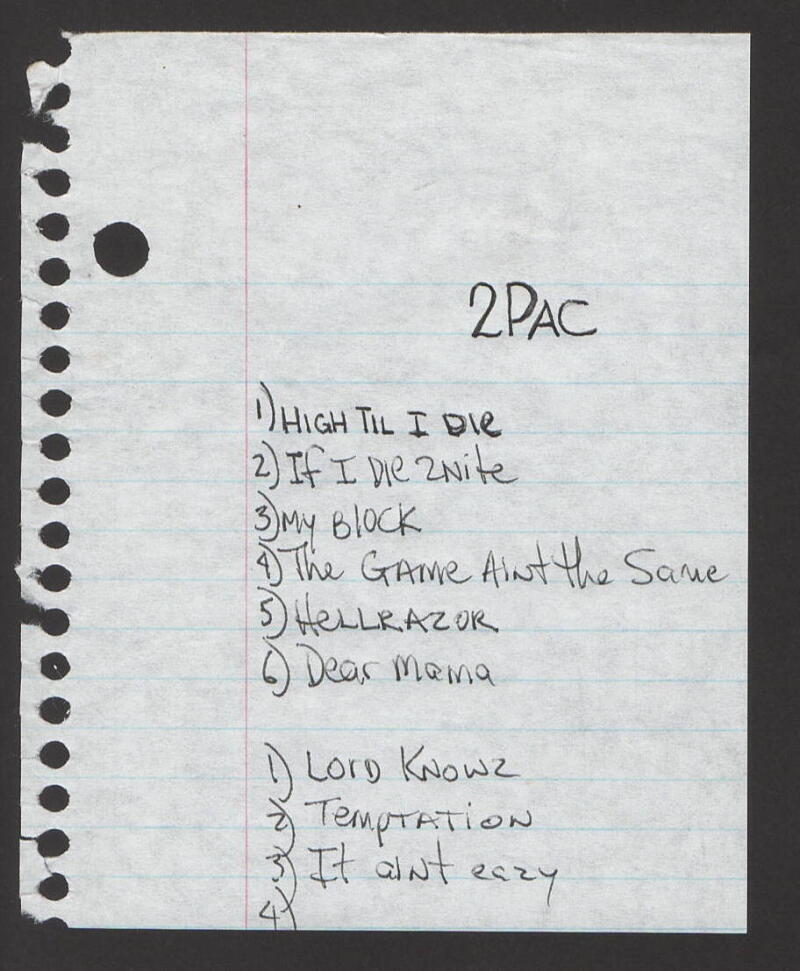 2PAC
1) HIGH TIL I DIe
2) If I DIe 2Nite
3) My BlOCK
4) The GAMe AiNt the Same
5) HeLLRAZOR
6) Dear Mama
1) LOrD KNOWZ
2) TempTATiON
3) It aint eazy
4)